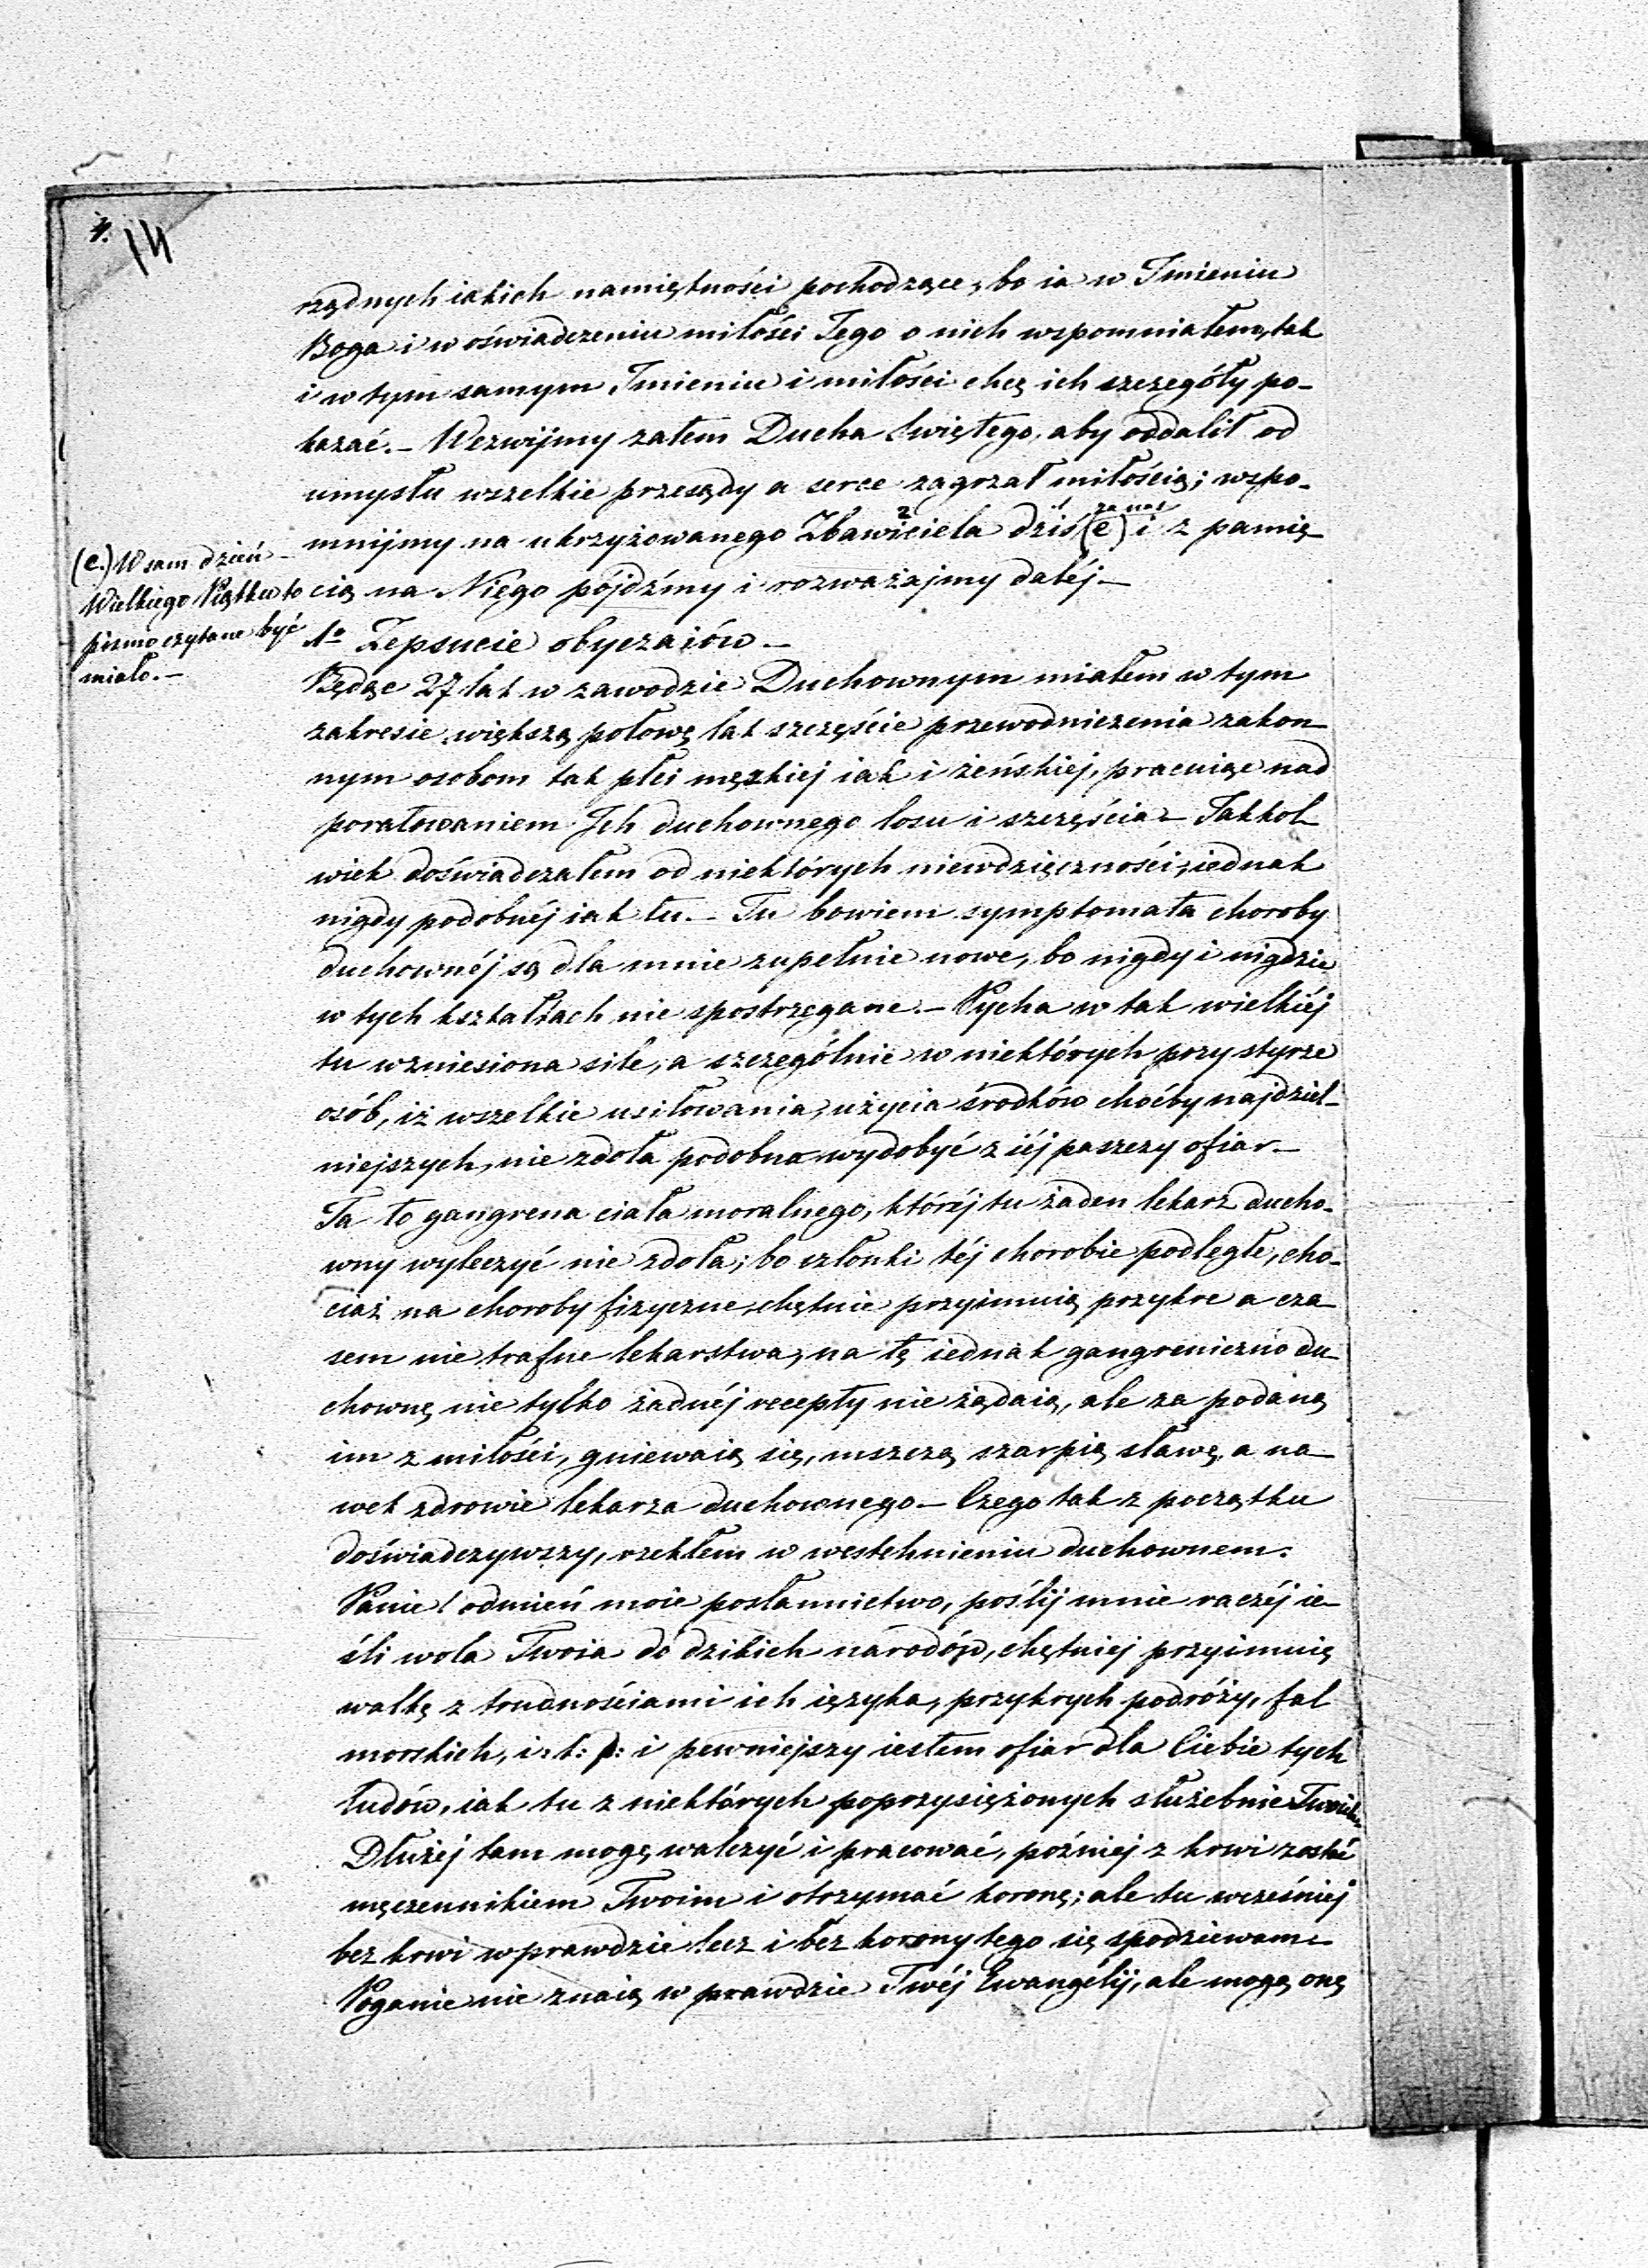 4. 14
rządnych iakich namiętności pochodzące, bo ia w Imieniu
Boga i w oświadczeniu miłości Jego o nich wspomniałem, tak
i w tym samym Imieniu i miłości chcę ich szczegóły po-
kazać. – Wezwijmy zatem Ducha Świętego, aby oddalił od
umysłu wszelkie przesądy a serce zagrzał miłością; wspo-
za nas
mnijmy na ukrzyżowanego Zbawiciela dziś (e) i z pamię-
cią na Niego pójdźmy i rozważajmy daléj –
(e.) W sam dzień
Wielkiego Piątku to
pismo czytane być
miało. –
1o Zepsucie obyczaiów –
Będąc 27 lat w zawodzie Duchownym miałem w tym
zakresie większą połowę lat szczęście przewodniczenia zakon-
nym osobom tak płci męzkiej iak i żeńskiej, pracuiąc nad
poratowaniem Ich duchownego losu i szczęścia – Jakkol-
wiek doświadczałem od niektórych niewdzięczności, iednak
nigdy podobnéj iak tu. – Tu bowiem symptomata choroby
duchownéj są dla mnie zupełnie nowe, bo nigdy i nigdzie
w tych kształtach nie spostrzegane. – Pycha w tak wielkiéj
tu wzniesiona sile, a szczególnie w niektórych przy styrze
osób, iż wszelkie usiłowania, użycia środków choćby najdziel-
niejszych, nie zdoła podobno wydobyć z iéj paszczy ofiar. –
Ta to gangrena ciała moralnego, któréj tu żaden lekarz ducho-
wny wyleczyć nie zdoła; bo członki téj chorobie podległe, cho-
ciaż na choroby fizyczne, chętnie przyimuią przykre a cza-
sem nie trafne lekarstwa, na tę iednak gangreniczno du-
chowną nie tylko żadnéj recepty nie żądaią, ale za podaną
im z miłości, gniewaią się, mszczą szarpią sławę, a na-
wet zdrowie lekarza duchownego – Czego tak z początku
doświadczywszy, rzekłem w westchnieniu duchownem:
Panie! odmień moie posłannictwo, poślij mnie raczéj ie-
śli wola Twoia do dzikich narodów, chętniej przyimuię
walkę z trudnościami ich ięzyka, przykrych podróży, fal
morskich, i: t: p: i pewniejszy iestem ofiar dla Ciebie tych
ludów, iak tu z niektórych poprzysiężonych służebnic Twoich
Dłużéj tam mogę walczyć i pracować, późniéj z krwi zostać
męczennikiem Twoim i otrzymać koronę; ale tu wcześniej
bez krwi wprawdzie lecz i bez korony tego się spodziewam –
Poganie nie znaią w prawdzie Twéj Ewangélij, ale mogą onę